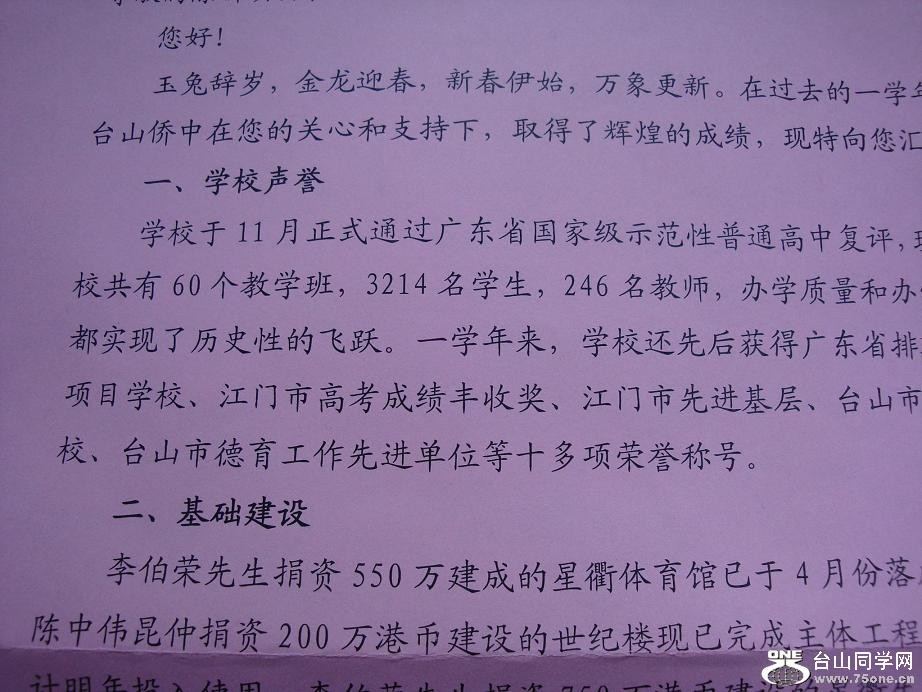 您好！
玉兔辞岁，金龙迎春，新春伊始，万象更新。在过去的一学年
台山侨中在您的关心和支持下，取得了辉煌的成绩，现特向您汇
一、学校声誉
学校于 11 月正式通过广东省国家级示范性普通高中复评，现
校共有 60 个教学班，3214 名学生，246 名教师，办学质量和办
都实现了历史性的飞跃。一学年来，学校还先后获得广东省排
项目学校、江门市高考成绩丰收奖、江门市先进基层、台山市
校、台山市德育工作先进单位等十多项荣誉称号。
二、基础建设
李伯荣先生捐资 550 万建成的星衢体育馆已于 4 月份落
陈中伟昆仲捐资 200 万港币建设的世纪楼现已完成主体工程
计明年投入使用
ONE 台山同学网
www.75one.cn